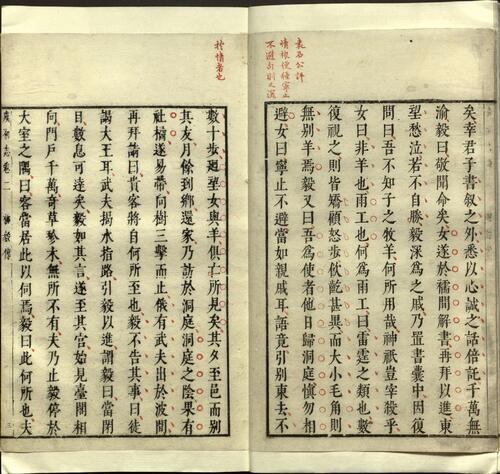 袁石公評
寧止
不避
矣幸君子書叙之外悉以心誠之話倍託千萬無
渝毅曰敬聞命矣女遂於襦間解書再拜以進東
望愁泣若不自勝毅深爲之戚乃置書囊中因復
問曰吾不知子之牧羊何所用哉神祇豈宰殺乎
女曰非羊也雨工也何爲雨工曰雷霆之類也數
復視之則皆矯顧怒步飲齕甚異而大小毛角則
無別羊焉毅又曰吾爲使者他日歸洞庭慎勿相
避女曰寧止不避當如親戚耳語竟引別東去不
於情者也
數十步迴望女與羊俱亡所見矣其夕至邑而別
其友月餘到鄉還家乃訪於洞庭洞庭之陰果有
社橘遂易帶向樹三擊而止俄有武夫出於波間
再拜請曰貴客將自何所至也毅不告其事曰徒
謁大王耳武夫揭水指路引毅以進謂毅曰當閉
目數息可達矣毅如其言遂至其宮始見臺閣相
向門戶千萬奇草珍木無所不有夫乃止毅停於
大室之隅曰客當居此以伺焉毅曰此何所也夫
虞初志卷二 柳毅傳